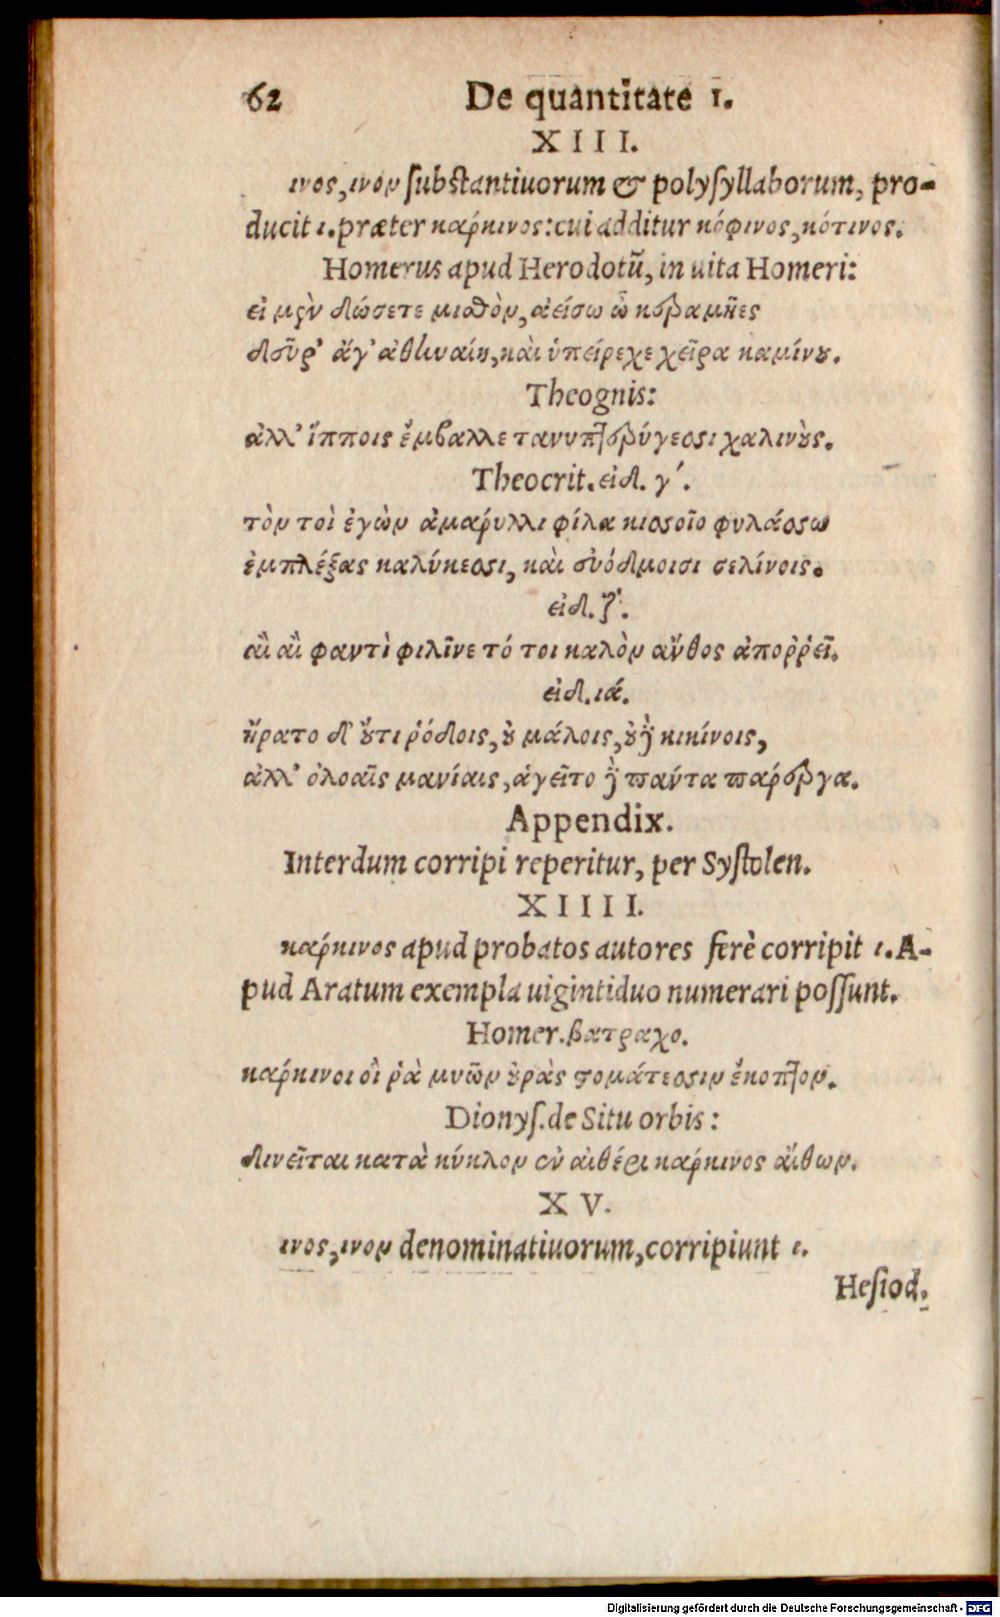 62 De quantitate ι.
XIII.
ινος, ινον substantiuorum & polysyllaborum, pro-
ducit ι. præter καρκίνος: cui additur κόφινος, κότινος.
Homerus apud Herodotũ, in uita Homeri:
εἰ μὲν δώσετε μισθὸν, ἀείσω ὦ κεραμῆες
δεῦρ' ἄγ' ἀθηναίη, καὶ ὑπείρεχε χεῖρα καμίνου.
Theognis:
ἀλλ' ἵπποις ἔμβαλλε τανυπτερύγεσσι χαλινοὺς.
Theocrit. εἰδ. γ'.
τὸν τοὶ ἐγὼν ἀμαρυλλι φίλα κισσοῖο φυλάσσω
ἐμπλέξας καλύκεσσι, καὶ εὐόδμοισι σελίνοις.
εἰδ. ζ'.
αὶ αὶ φαντὶ φιλῖνε τό τοι καλὸν ἄνθος ἀποῤῥεῖ.
εἰδ. ιά.
ἤρατο δ' οὔτι ῥόδοις, οὐ μάλοις, οὐδὲ κικίνοις,
ἀλλ' ὀλοαῖς μανίαις, ἁγεῖτο δὲ παντα πάρεργα.
Appendix.
Interdum corripi reperitur, per Systolen.
XIIII.
καρκινος apud probatos autores ferè corripit ι. A-
pud Aratum exempla uigintiduo numerari possunt.
Homer. βατραχο.
καρκινοι οἳ ῥὰ μυῶν οὐρὰς στομάτεσσιν ἔκοπτον.
Dionys. de Situ orbis:
δινεῖται κατὰ κύκλον ἐν αἰθέρι καρκινος αἴθων.
XV.
ινος, ινον denominatiuorum, corripiunt ι.
Hesiod.
Digitalisierung gefördert durch die Deutsche Forschungsgemeinschaft - DFG